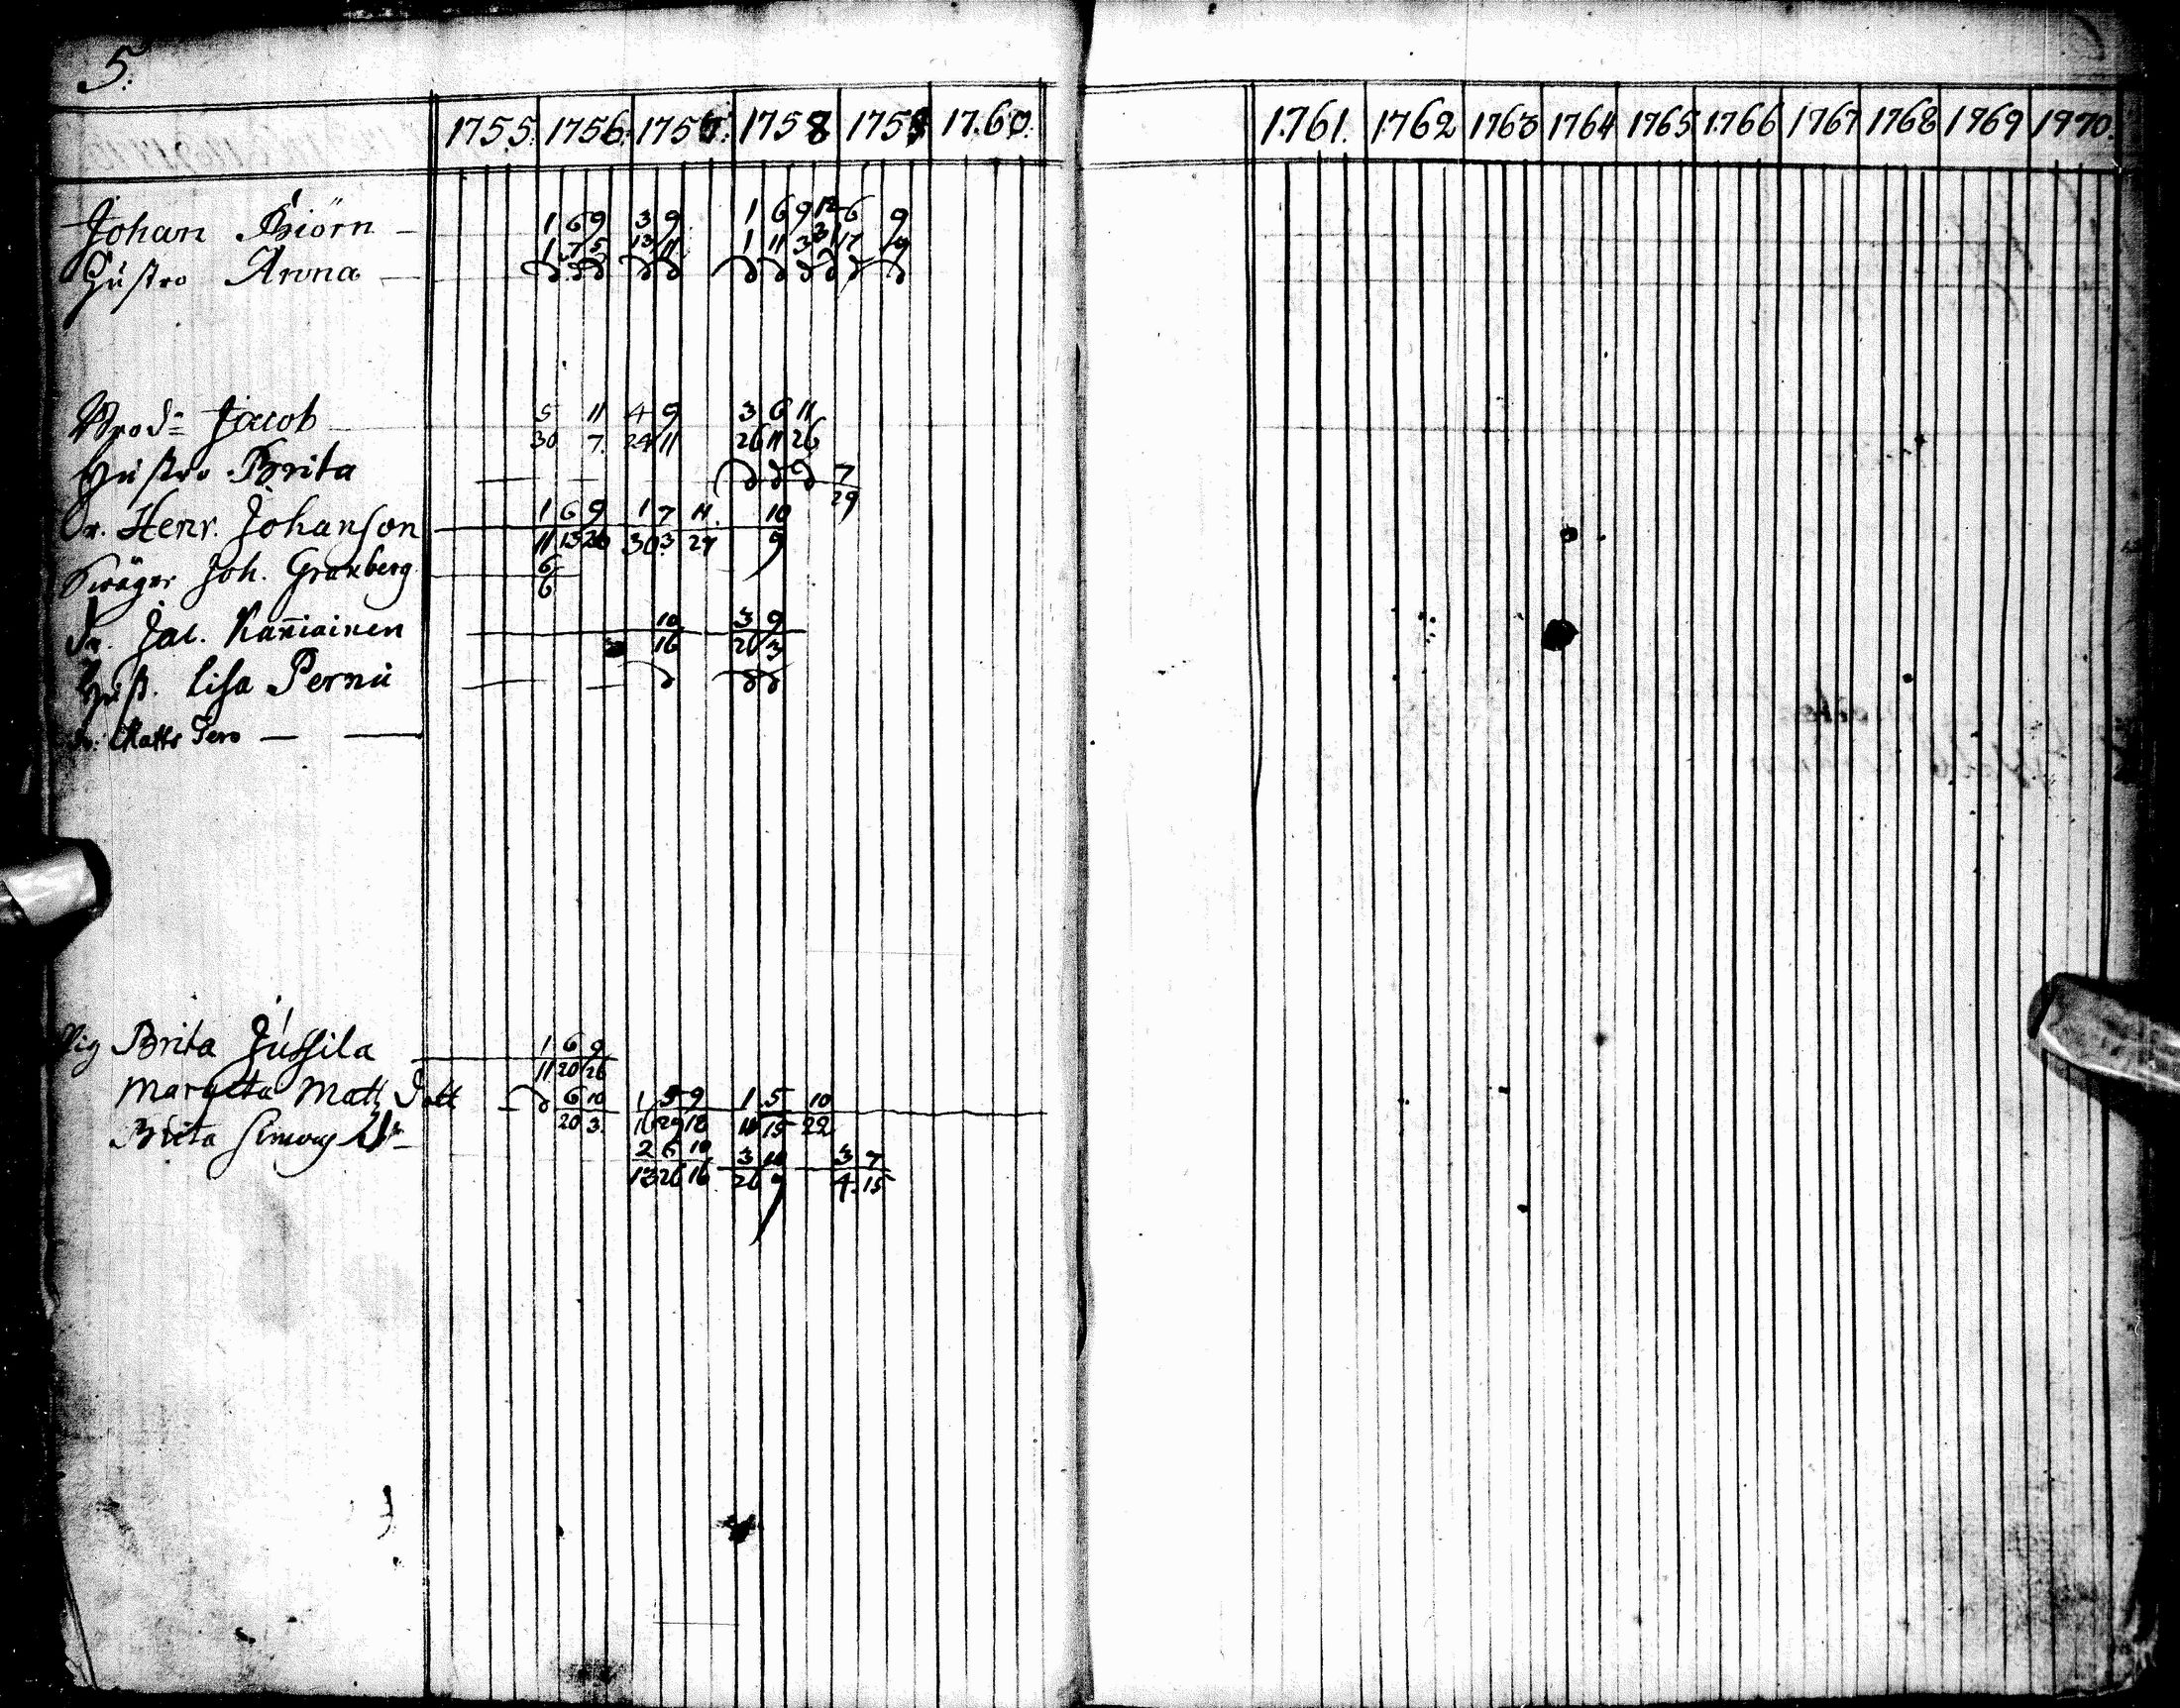 5.
1755. 1756. 1757. 1758 1759 1760. 1761. 1762 1763 1764 1765 1766 1767 1768 1969 1970.
1 6 9 3 9 1 6 9 12 6 9
Johan Biörn
1 7 5 13 11 1 11 3 31 17 9
Hustro Anna
5 11 4 9 3 6 11
Brod= Jacob
30 7. 24 11 26 11 26
Hustro Brita 7
29
1 6 9 1 7 11. 10
Dr. Henr. Johanson
11 13 26 30 3 27 9
Swåger Joh. Granberg 6
6
10 3 9
Dr. Jac. Kan̄iainen
16 26 3
Hust. Lisa Pernu
Dr. Matts Tero
1 6 9
Pig Brita Jussila
11 20 26
Margeta Matt 6 10 1 5 9 1 5 10
20 3 11 29 18 11 15 22
Brita Simons Dr
2 6 10 3 10 3 7
13 26 16 26 9 4 15